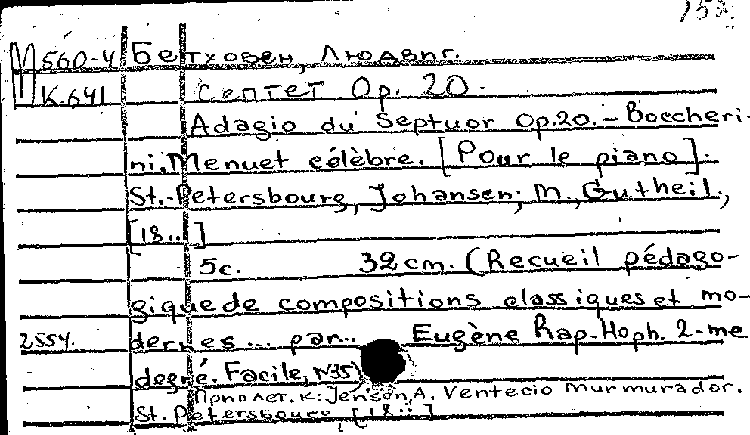 153
М 560-4 Бетховен, Людвиг.
К.641 Септет Op. 20.
Adagio du Septuor Op.20. – Boccheri-
ni. Menuet célèbre. [Pour le piano].
St.-Petersbourg, Johansen; M., Gutheil,
[18..]
5с. 32 cm. (Recueil pédago-
gique de compositions classiques et mo-
2554. dernes ... par.. Eugène Rap-Hoph. 2-me
degré. Facile, N35)
Приплет. к: Jensen, A. Ventecio murmurador.
St. Petersbourg, [18..]